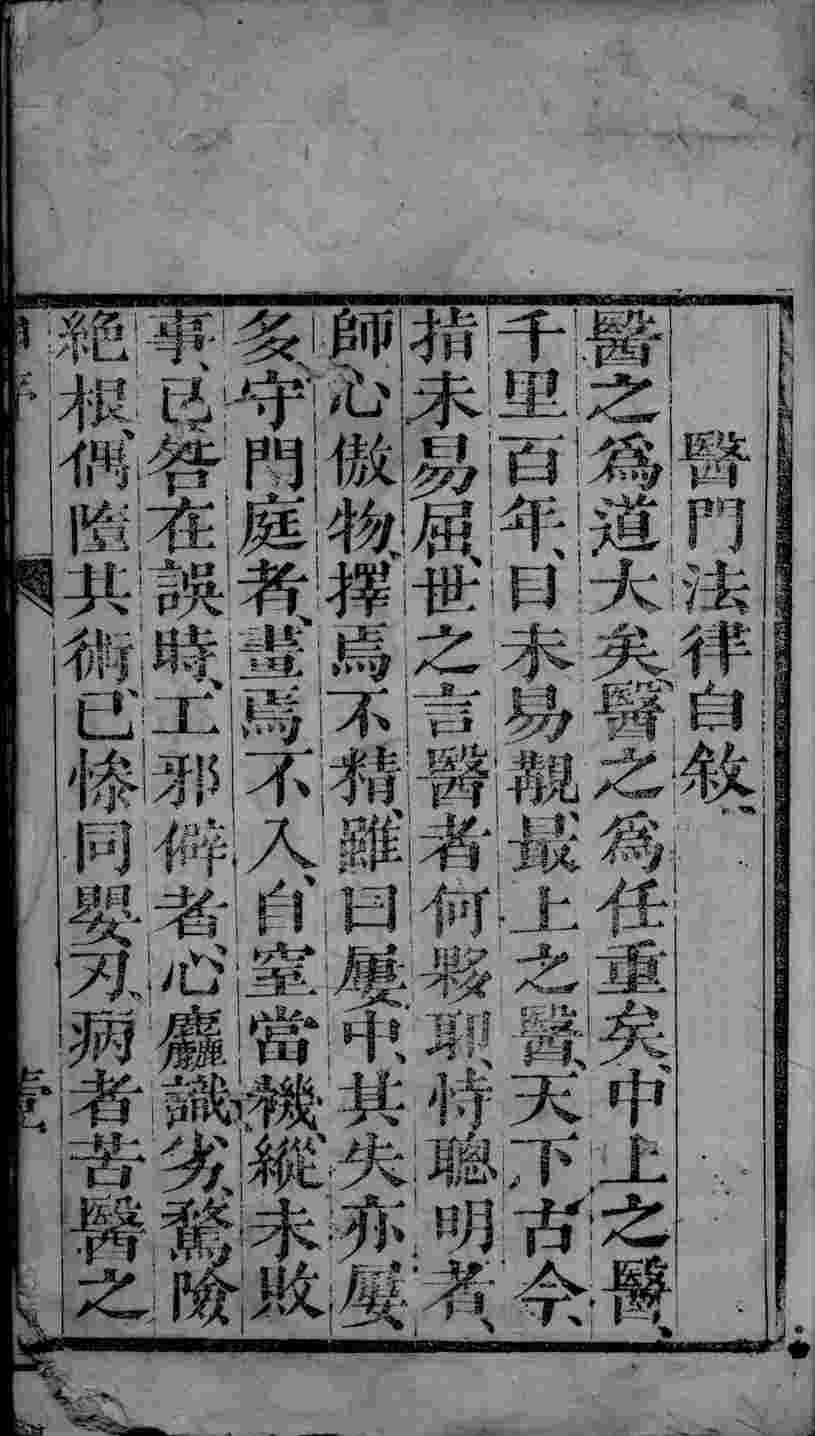 醫門法律自敘
醫之為道大矣醫之為任重矣、中上之醫、
千里百年、目未易覩、最上之醫、天下古今、
指未易屈、世之言醫者何夥耶、恃聰明者、
師心傲物、擇焉不精、雖曰屢中、其失亦屢、
多守門庭者、畫焉不入、自窒當機、縱未敗
事、已咎在誤時、工邪僻者、心麤識劣、騖險
絶根、偶墮其術、已慘同嬰刃、病者苦醫之
序
壹